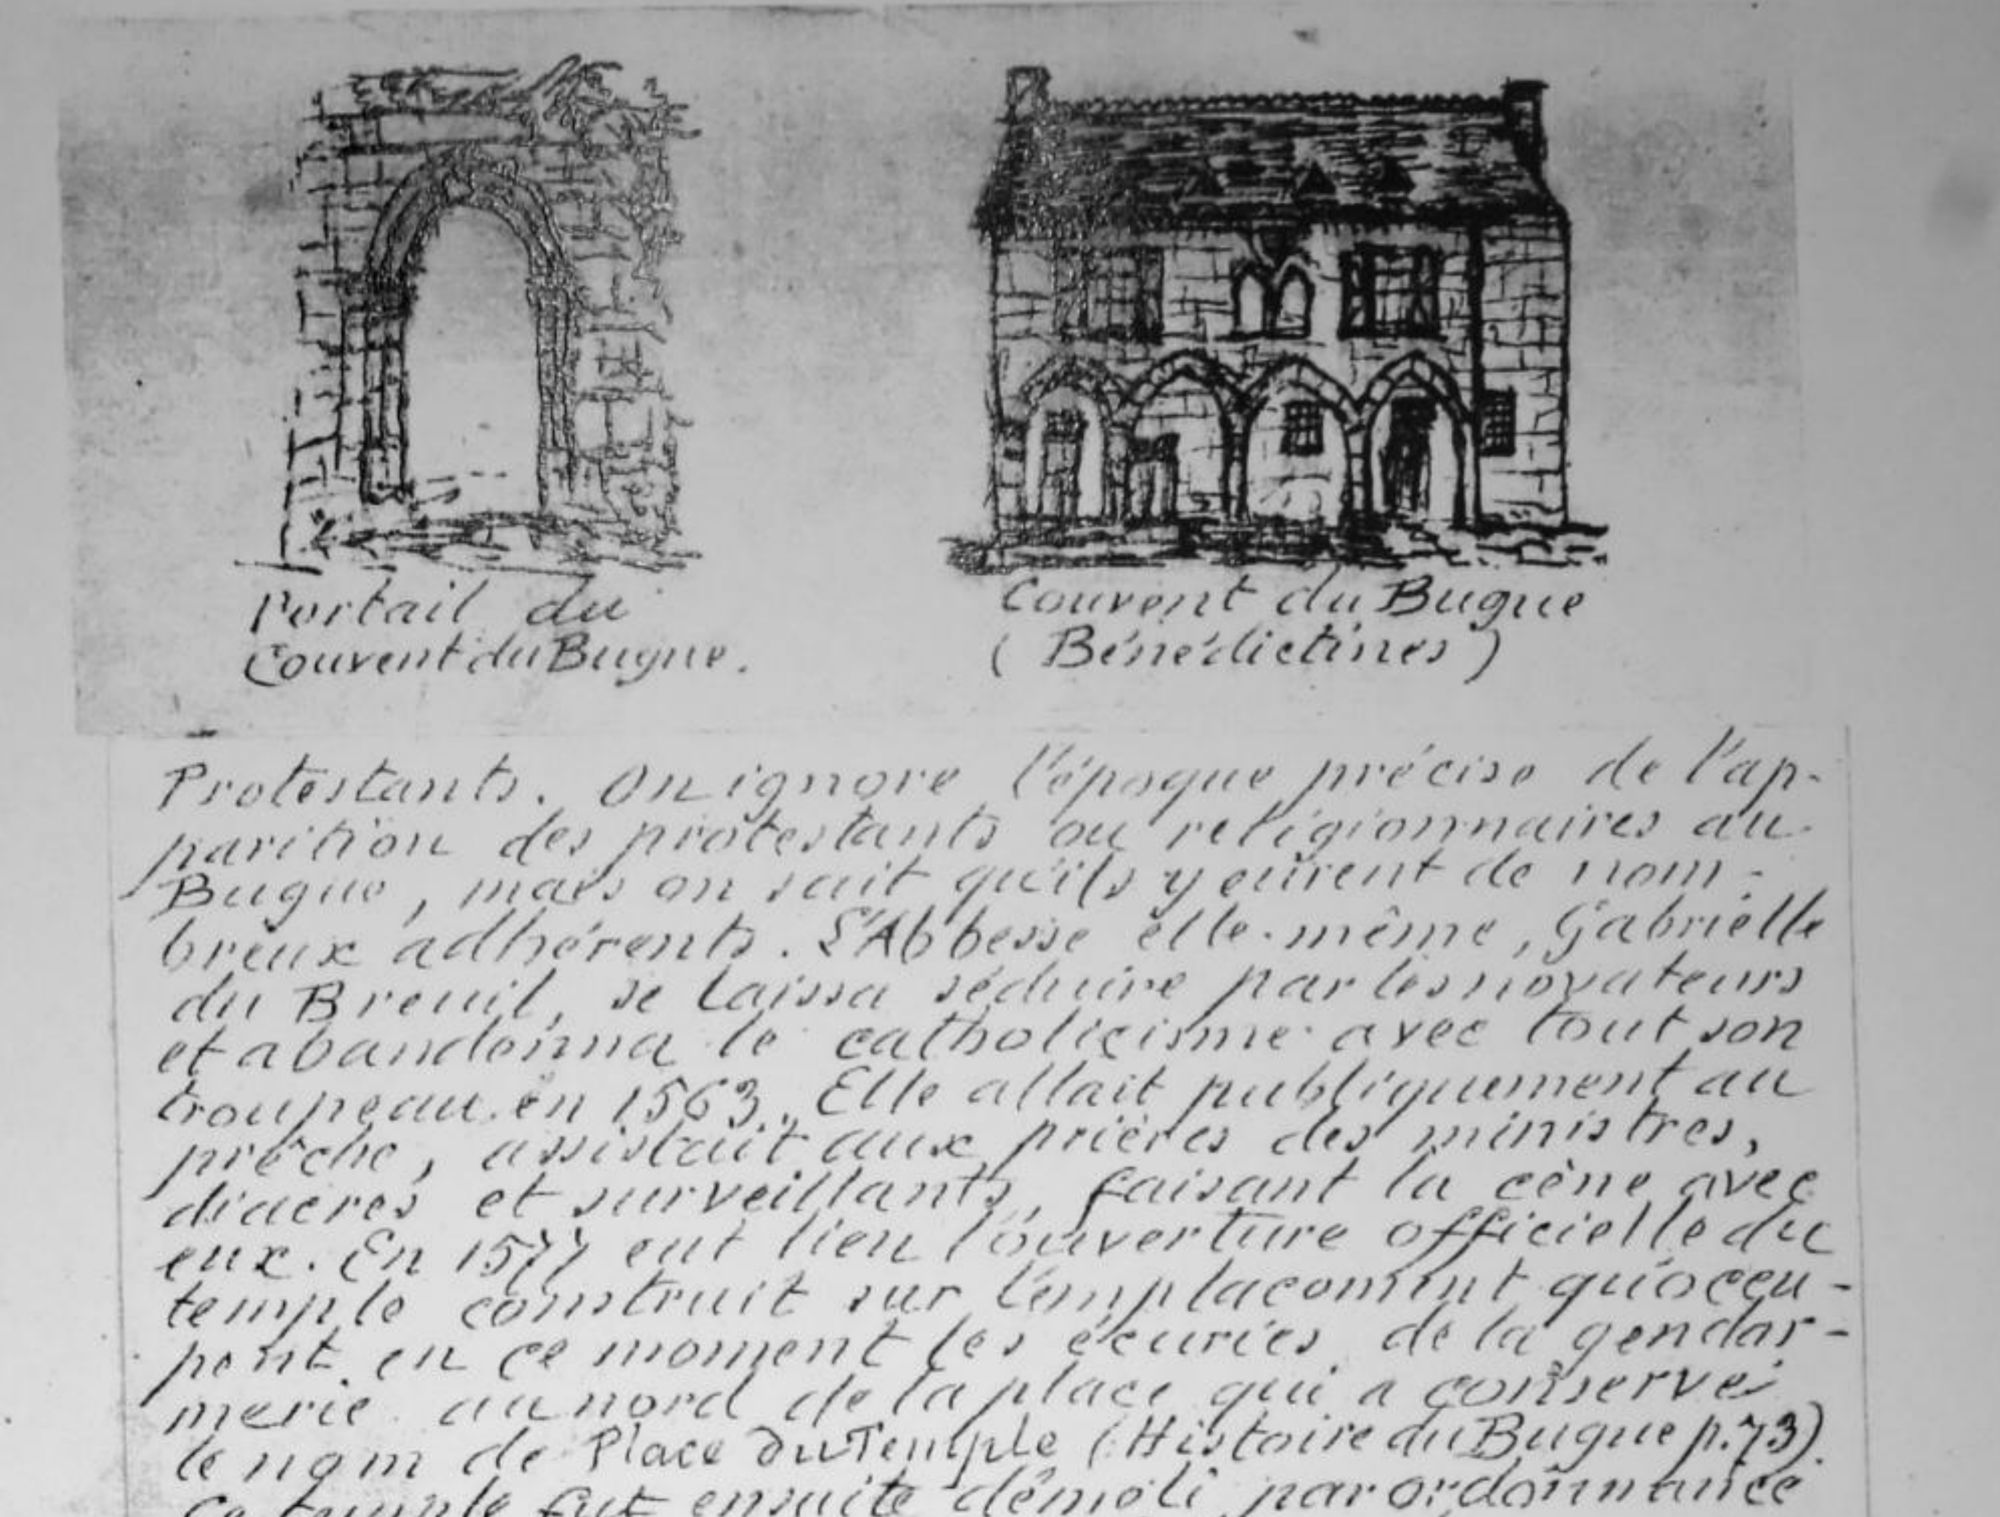 Portail du
Couvent du Bugue.
Couvent du Bugue
(Bénédictines)
Protestants. On ignore l'époque précise de l'ap-
parition des protestants ou religionnaires au
Bugue, mais on sait qu'ils y eurent de nom-
breux adhérents. L'Abbesse elle-même, Gabrielle
du Breuil, se laissa séduire par les novateurs
et abandonna le catholicisme avec tout son
troupeau en 1563. Elle allait publiquement au
prêche, assistait aux prières des ministres,
diacres et surveillants, faisant la cène avec
eux. En 1577 eut lieu l'ouverture officielle du
temple construit sur l'emplacement qu'occu-
pent en ce moment les écuries de la gendar-
merie au nord de la place qui a conservé
le nom de Place du Temple (Histoire du Bugue p. 73).
Ce temple fut ensuite démoli par ordonnance